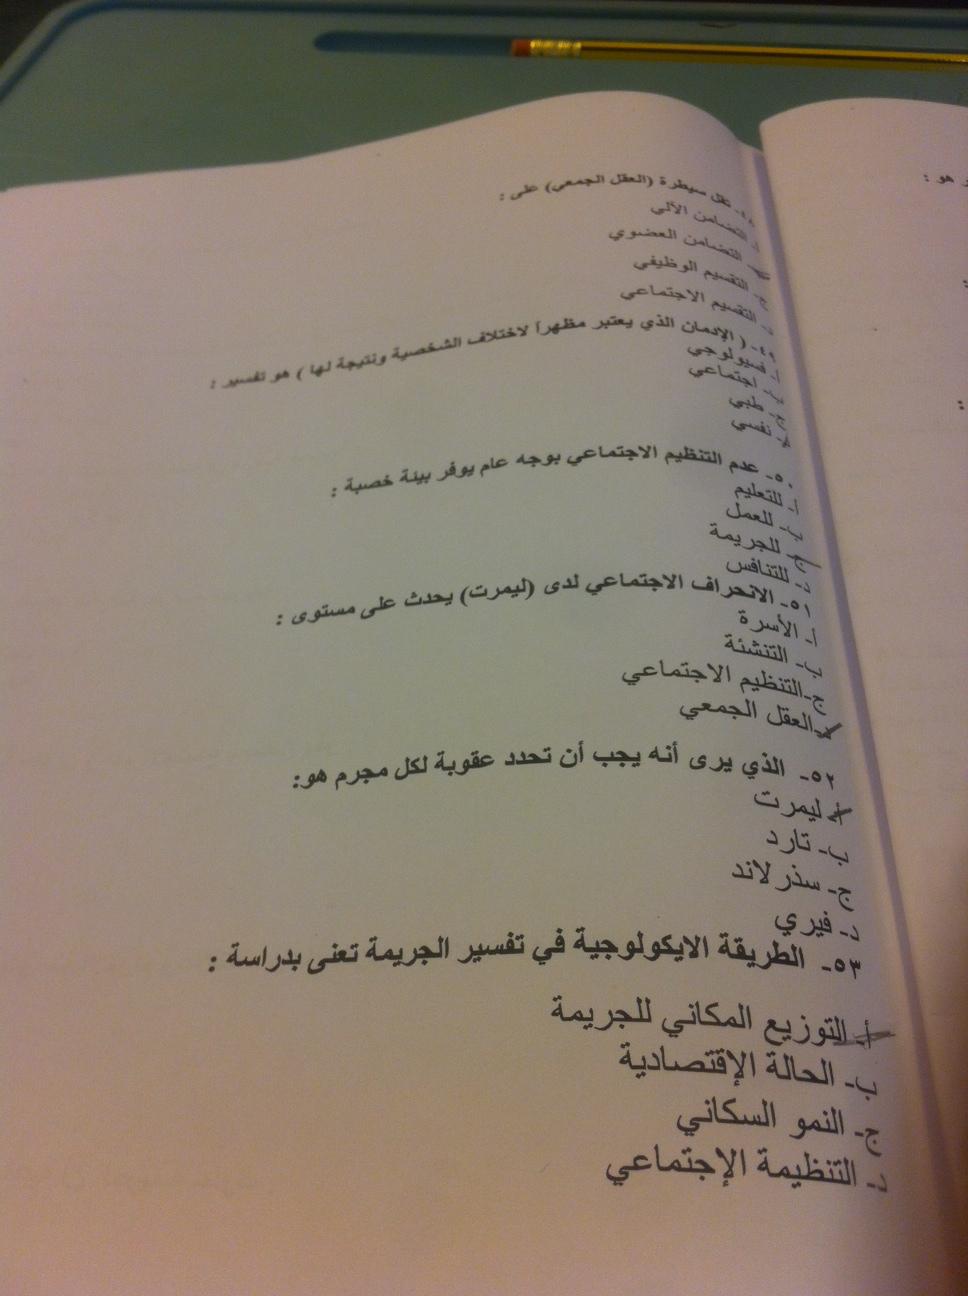 ٤٨- تقل سيطرة (العقل الجمعي) على :
أ- التضامن الآلي
ب- التضامن العضوي
ج- التقسيم الوظيفي
د- التقسيم الاجتماعي
٤٩- ( الإدمان الذي يعتبر مظهراً لاختلاف الشخصية ونتيجة لها ) هو تفسير :
أ- فسيولوجي
ب- اجتماعي
ج- طبي
د- نفسي
٥٠- عدم التنظيم الاجتماعي بوجه عام يوفر بيئة خصبة :
أ- للتعليم
ب- للعمل
ج- للجريمة
د- للتنافس
٥١- الانحراف الاجتماعي لدى (ليمرت) يحدث على مستوى :
أ- الأسرة
ب- التنشئة
ج- التنظيم الاجتماعي
د- العقل الجمعي
٥٢- الذي يرى أنه يجب أن تحدد عقوبة لكل مجرم هو:
أ- ليمرت
ب- تارد
ج- سذرلاند
د- فيري
٥٣- الطريقة الايكولوجية في تفسير الجريمة تعنى بدراسة :
أ- التوزيع المكاني للجريمة
ب- الحالة الإقتصادية
ج- النمو السكاني
د- التنظيمة الإجتماعي
هو :